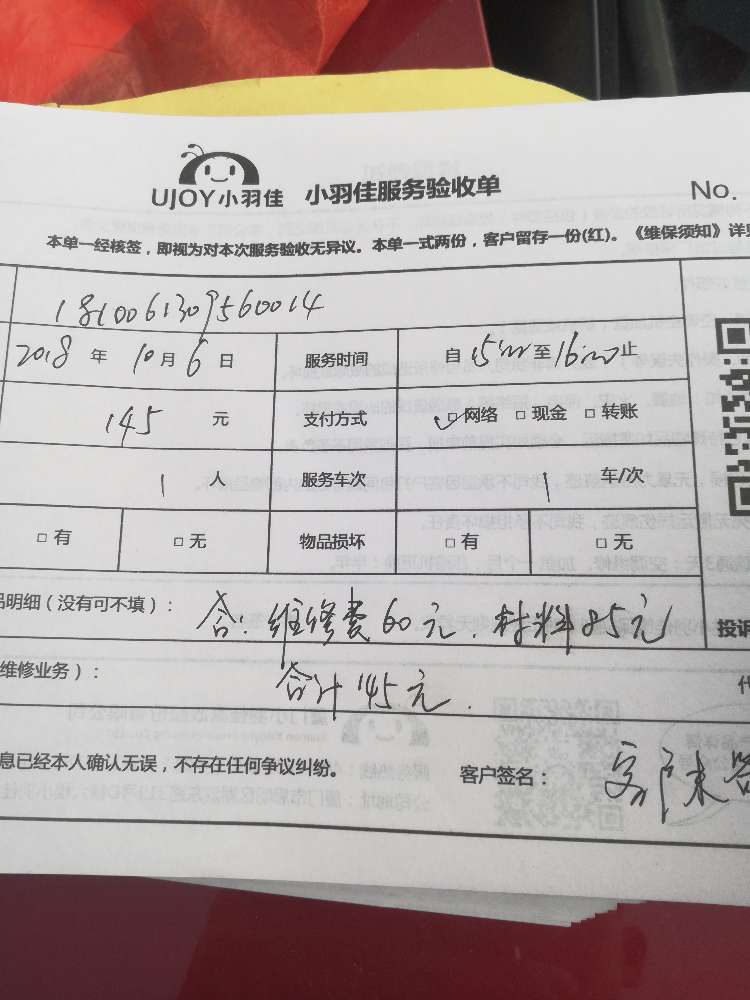 UJOY小羽佳 小羽佳服务验收单 No.
本单一经核签，即视为对本次服务验收无异议。本单一式两份，客户留存一份(红)。《维保须知》详见
1810061309560014
2018 年 10 月 6 日 服务时间 自 15:00 至 16:00 止
145 元 支付方式 □ 网络 □ 现金 □ 转账
1 人 服务车次 1 车/次
□ 有 □ 无 物品损坏 □ 有 □ 无
明细（没有可不填）： 含：维修费60元．材料85元
投诉
维修业务）： 合计145元．
息已经本人确认无误，不存在任何争议纠纷。 客户签名：